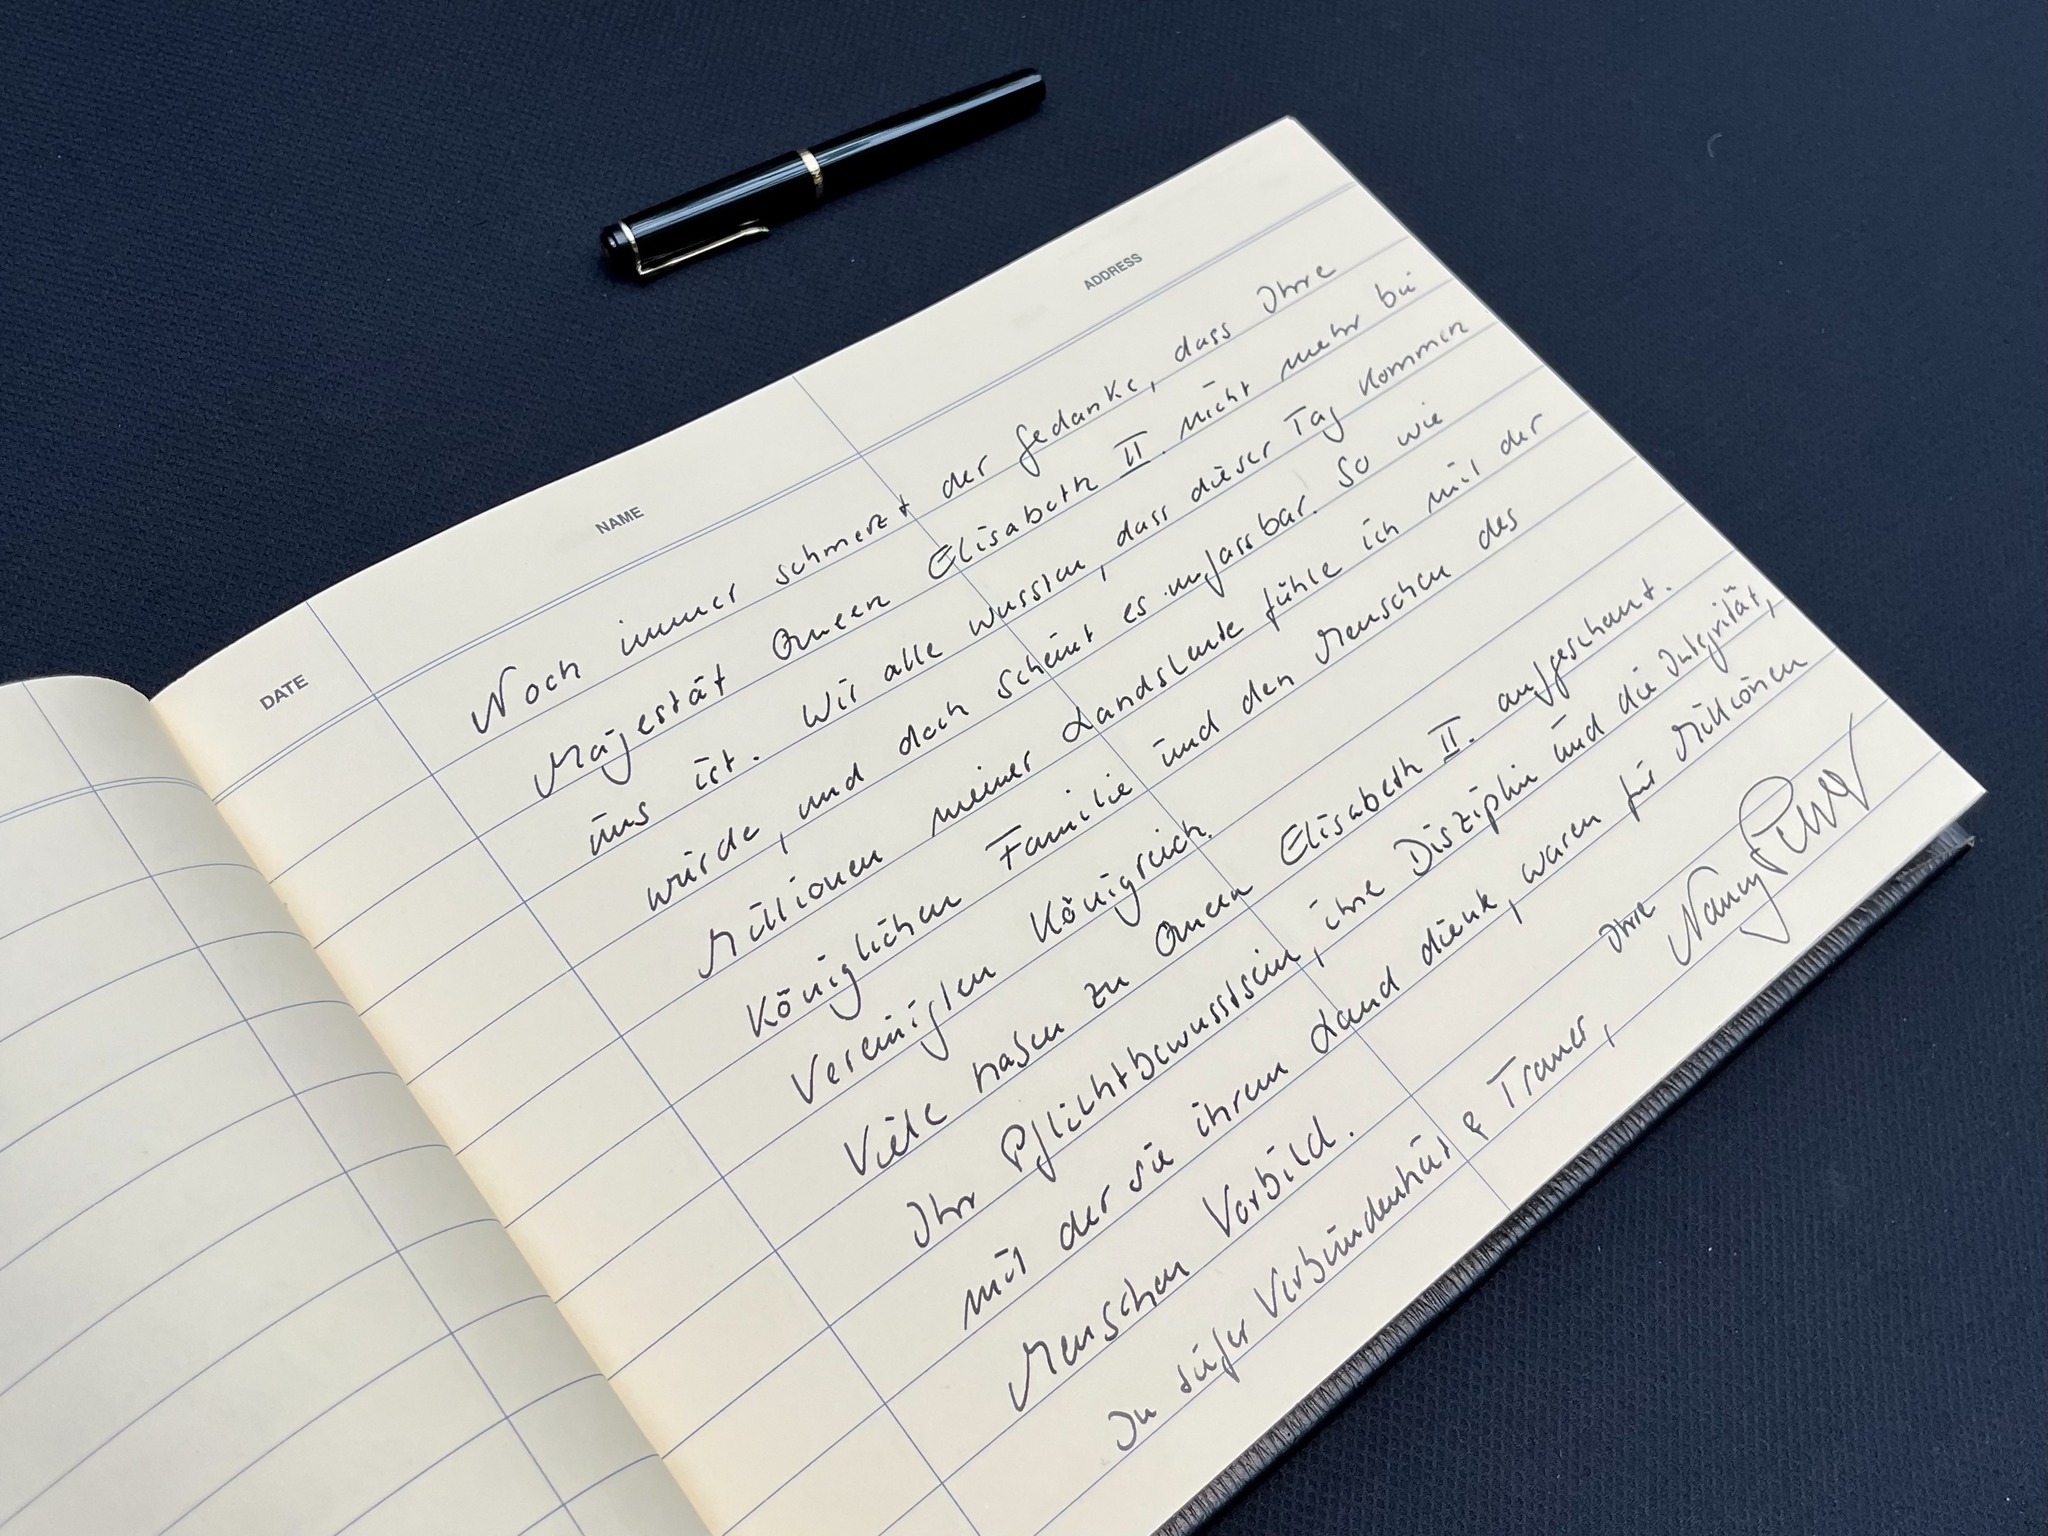 DATE NAME ADDRESS
Noch immer schmerzt der Gedanke, dass Ihre
Majestät Queen Elisabeth II. nicht mehr bei
uns ist. Wir alle wussten, dass dieser Tag kommen
würde, und doch scheint es unfassbar. So wie
Millionen meiner Landsleute fühle ich mit der
Königlichen Familie und den Menschen des
Vereinigten Königreich.
Viele haben zu Queen Elisabeth II. aufgeschaut.
Ihr Pflichtbewusstsein, ihre Disziplin und die Integrität,
mit der sie ihrem Land diente, waren für Millionen
Menschen Vorbild.
In tiefer Verbundenheit & Trauer,
Ihre
Nancy